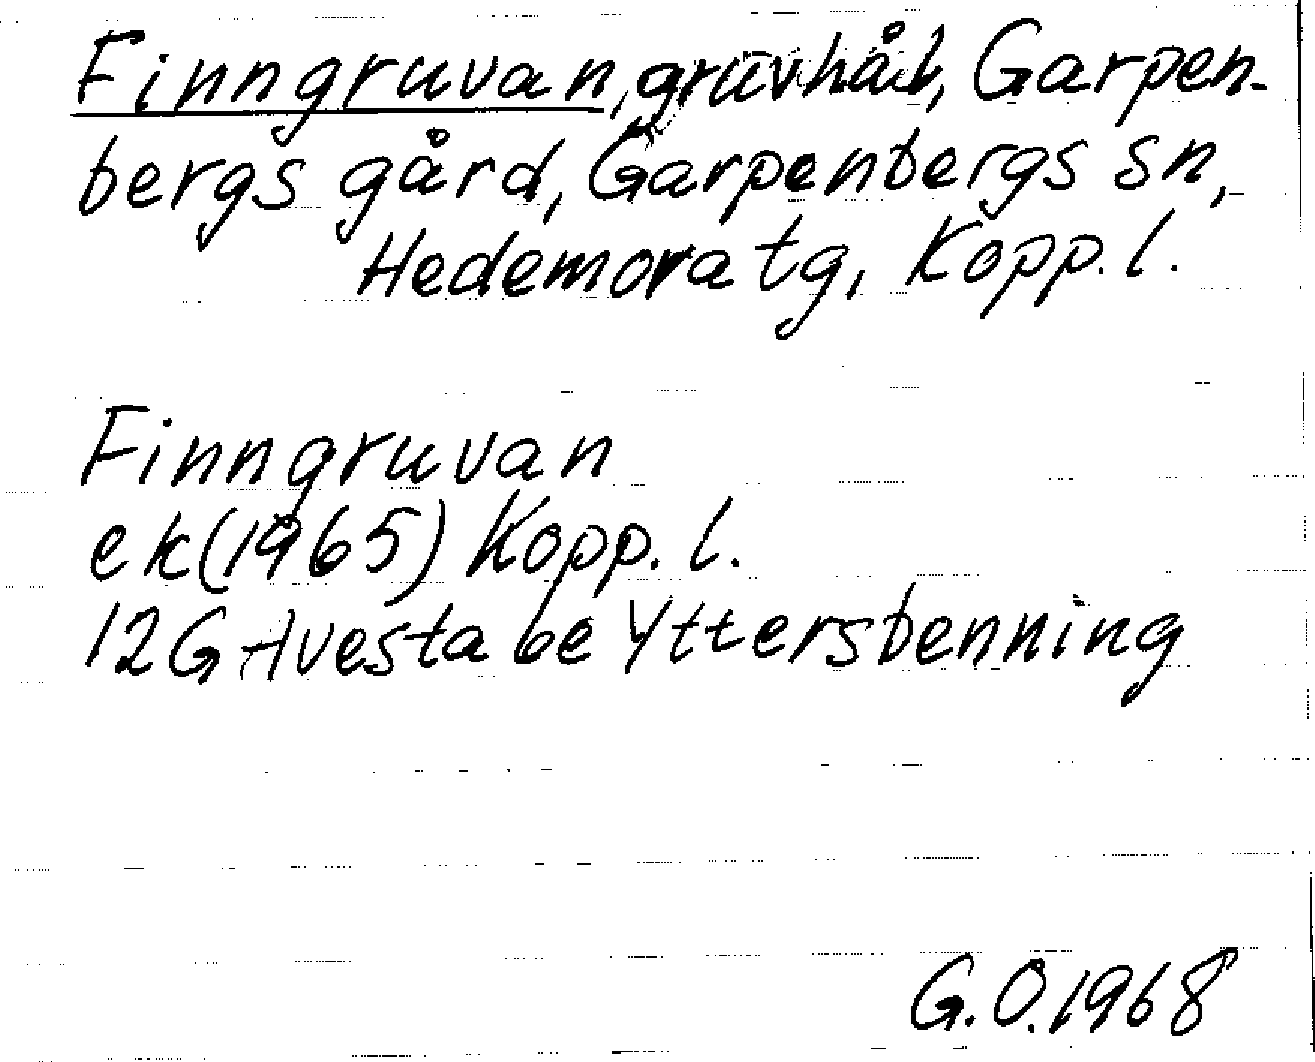 Finngruvan, gruvhål, Garpen-
bergs gård, Garpenbergs sn,
Hedemora tg, Kopp. l.
Finngruvan
ek (1965) Kopp. l.
12G Avesta 6e Yttersbenning
G.O. 1968